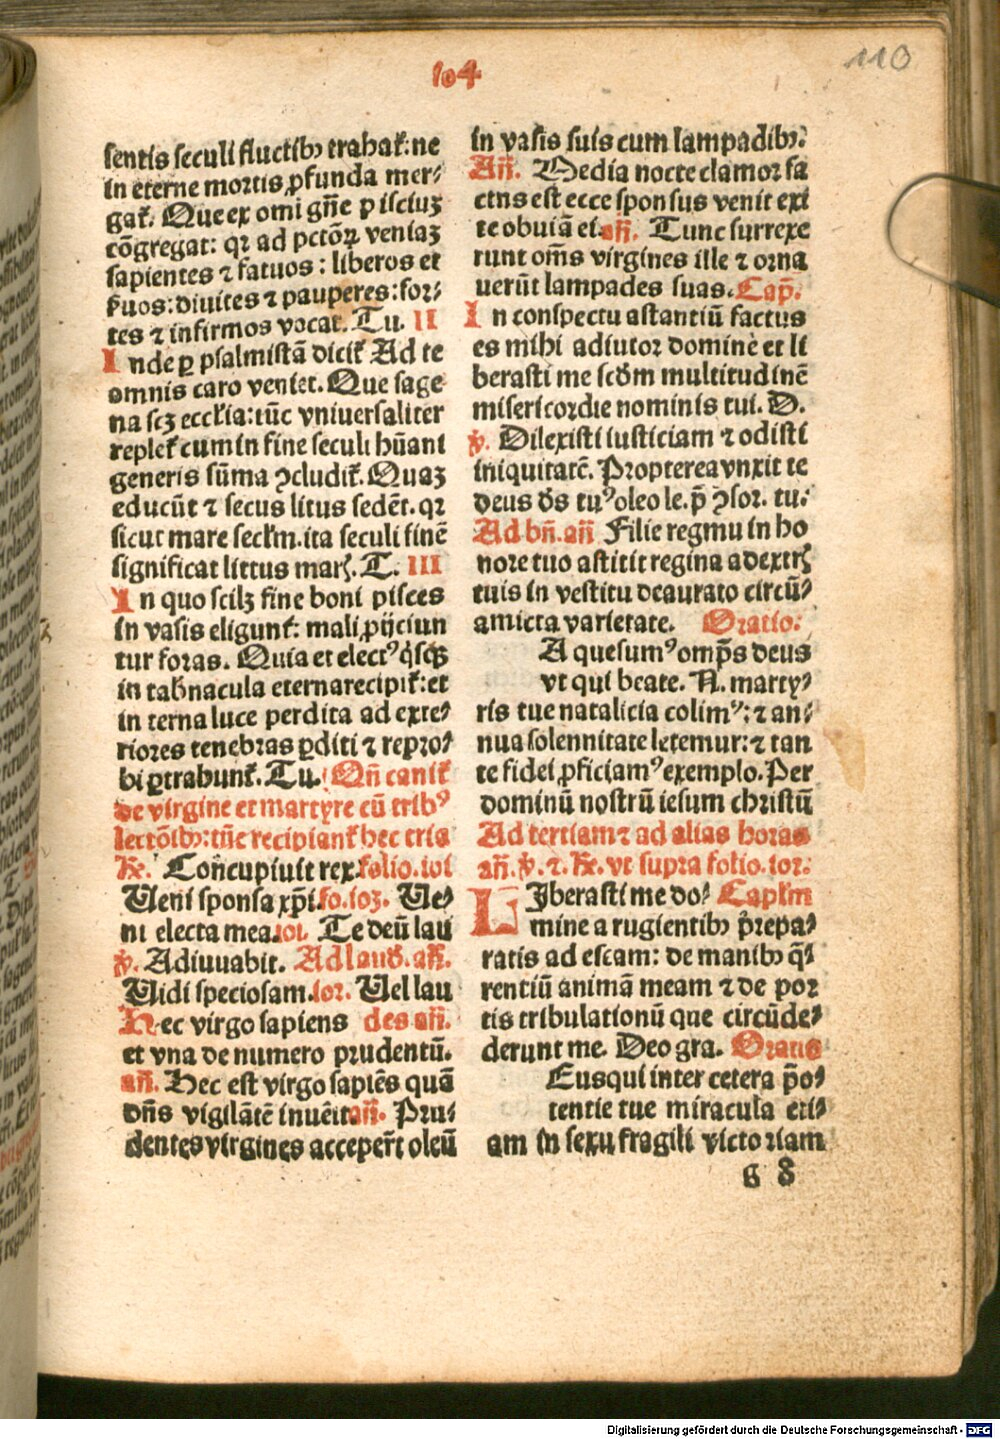 104
110
sentis seculi fluctibꝫ trahat᷑: ne
in eterne mortis ꝓfunda mer⸗
gat᷑. Que ex omi gn̄e pisciuꝫ
cōgregat: qꝛ ad pctōꝝ veniaꝫ
sapientes ⁊ fatuos: liberos et
ẜuos: diuites ⁊ pauperes: for⸗
tes ⁊ infirmos vocat. Tu. II
Inde ꝑ psalmistā dicit᷑ Ad te
omnis caro veniet. Que sage
na scꝫ eccl'ia: tūc vniuersaliter
replet᷑ cum in fine seculi hūani
generis sūma ꝯcludit᷑. Quaꝫ
educūt ⁊ secus litus sedēt. qꝛ
sicut mare secl'm. ita seculi finē
significat littus marꝭ. T. III
In quo scilꝫ fine boni pisces
in vasis eligunt᷑: mali ꝓijciun
tur foras. Quia et electꝰ q̇sqꝫ
in tab̄nacula eterna recipit᷑: et
interna luce perdita ad exte⸗
riores tenebras ꝑditi ⁊ repro⸗
bi ꝑtrabunt᷑. Tu. Qn̄ canit᷑
de virgine et martyre cū tribꝰ
lectōibꝫ: tūc recipiant᷑ hec tria
℟. Concupiuit rex. folio. 101
Veni sponsa xp̄i. fo. 103. Ve⸗
ni electa mea. 101. Te deū lau
℣. Adiuuabit. Ad laud̄. an̄.
Vidi speciosam. 102. Vel lau
Hec virgo sapiens des an̄.
et vna de numero prudentū.
an̄. Hec est virgo sapiēs quā
dn̄s vigilātē inuēit. an̄. Pru⸗
dentes virgines acceper̄t oleū
in vasis suis cum lampadibꝫ:
An̄. Media nocte clamor fa
ctns est ecce sponsus venit exi
te obuiā ei. an̄. Tunc surrexe
runt om̄s virgines ille ⁊ orna
uerūt lampades suas. Cap̄.
In conspectu astantiū factus
es mihi adiutor domine et li
berasti me scd̄m multitudinē
misericordie nominis tui. D.
℣. Dilexisti iusticiam ⁊ odisti
iniquitatē. Propterea vnxit te
deus d̄s tuꝰ oleo le. p̄ ꝯsor. tu.
Ad bn̄. an̄ Filie regmu in ho
nore tuo astitit regina a dextrꝭ
tuis in vestitu deaurato circū⸗
amicta varietate. Oratio.
A quesumꝰ omp̄s deus
vt qui beate. N. marty⸗
ris tue natalicia colimꝰ: ⁊ an⸗
nua solennitate letemur: ⁊ tan
te fidei ꝓficiamꝰ exemplo. Per
dominū nostrū iesum christū
Ad tertiam ⁊ ad alias horas
an̄. ℣. ⁊. ℟. vt supra folio. 102.
LIberasti me do⸗ Capl'm
mine a rugientibꝫ p̄repa⸗
ratis ad escam: de manibꝫ q̄⸗
rentiū animā meam ⁊ de por
tis tribulationū que circūde⸗
derunt me. Deo gra. Oratio
Eus qui inter cetera po⸗
tentie tue miracula eti⸗
am in sexu fragili victoriam
Digitalisierung gefördert durch die Deutsche Forschungsgemeinschaft - DFG